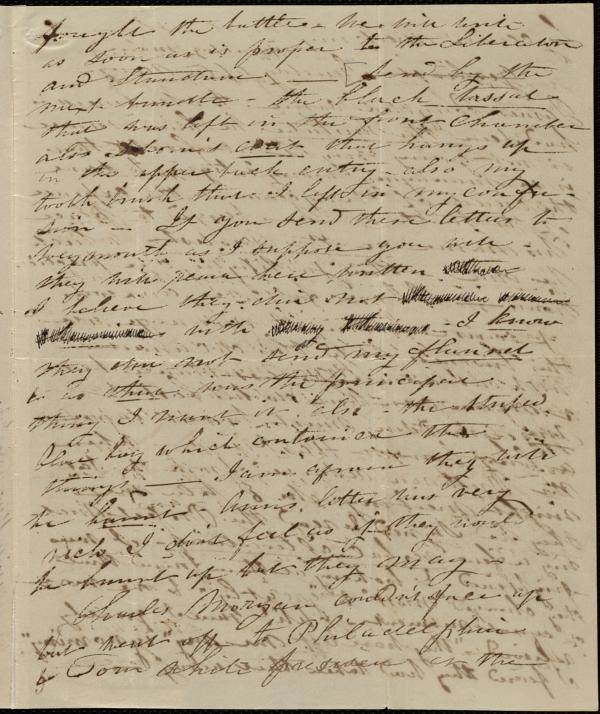 fought the battle - He will write
as soon as is proper to the Liberator
and Standard — Send by the
next bundle - the black Tassel
that was left in the front chamber
also Thom's coat that hangs up
in the upper back entry - also my
tooth brush that I left in my confu-
sion — If you send these letters to
Weymouth as I suppose you will -
they will have been written
I believe they did not
with - I know
they did not send my flannel
as was the principal
thing I want it also - the striped
blue bag which contained the
things — I am afraid they will
be burnt - Anne's letter was very
I don't feel as if they would
be burnt up but they may -
Charles Morgan couldn't give up
but went off to Philadelphia
Tom White presided at the